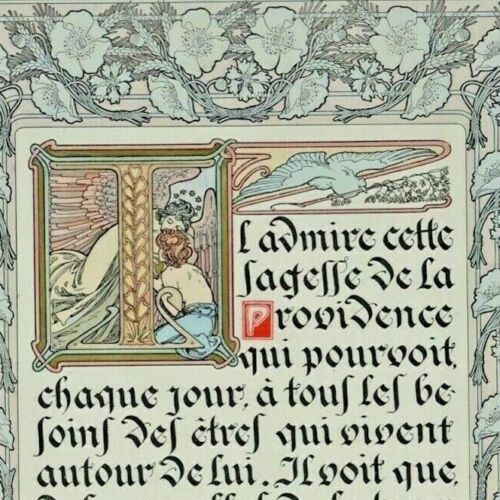 Il admire cette
sagesse de la
Providence
qui pourvoit,
chaque jour, à tous les be-
soins des êtres qui vivent
autour de lui. Il voit que,